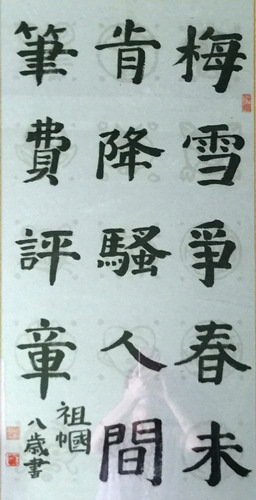 梅雪爭春未
肯降騷人間
筆費評章
祖幗
八歲書